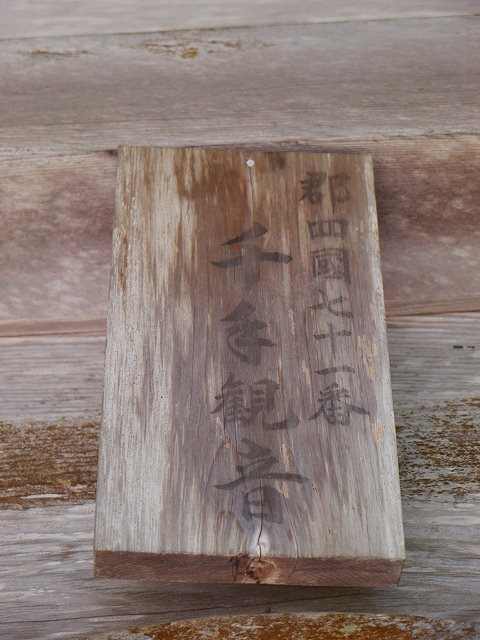 郡四國七十一番
千手観音